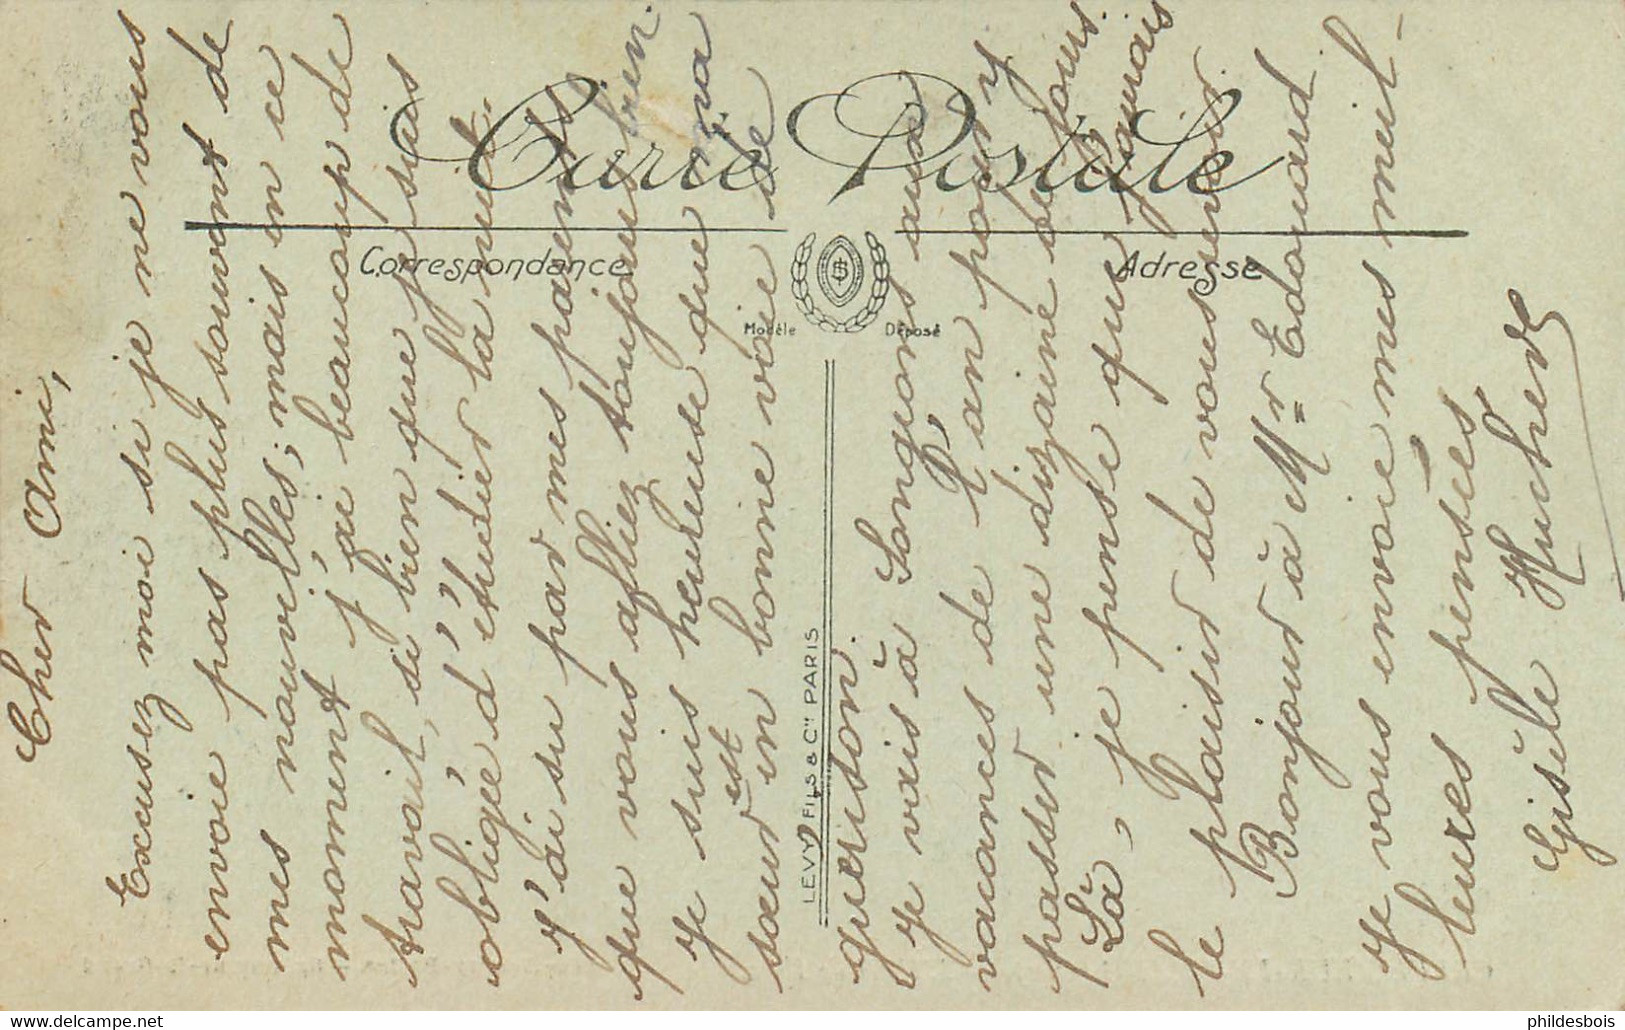 Carte Postale
Correspondance
Adresse
Modèle Déposé
LEVY FILS & Cie PARIS
Cher Ami,
Excusez moi si je ne vous
envoie pas plus souvent de
mes nouvelles; mais en ce
moment j'ai beaucoup de
travail, si bien que je suis
obligée d'étudier la nuit.
J'ai su par mes parents
que vous alliez toujours bien.
Je suis heureuse que ma
sœur est en bonne voie de
guérison.
Je vais à Langeais aux
vacances de l'an pour y
passer une dizaine de jours.
Là, je pense que j'aurais
le plaisir de vous revoir.
Bonjour à Mr Edouard
Je vous envoie mes meil-
leures pensées
Gisèle
phildesbois